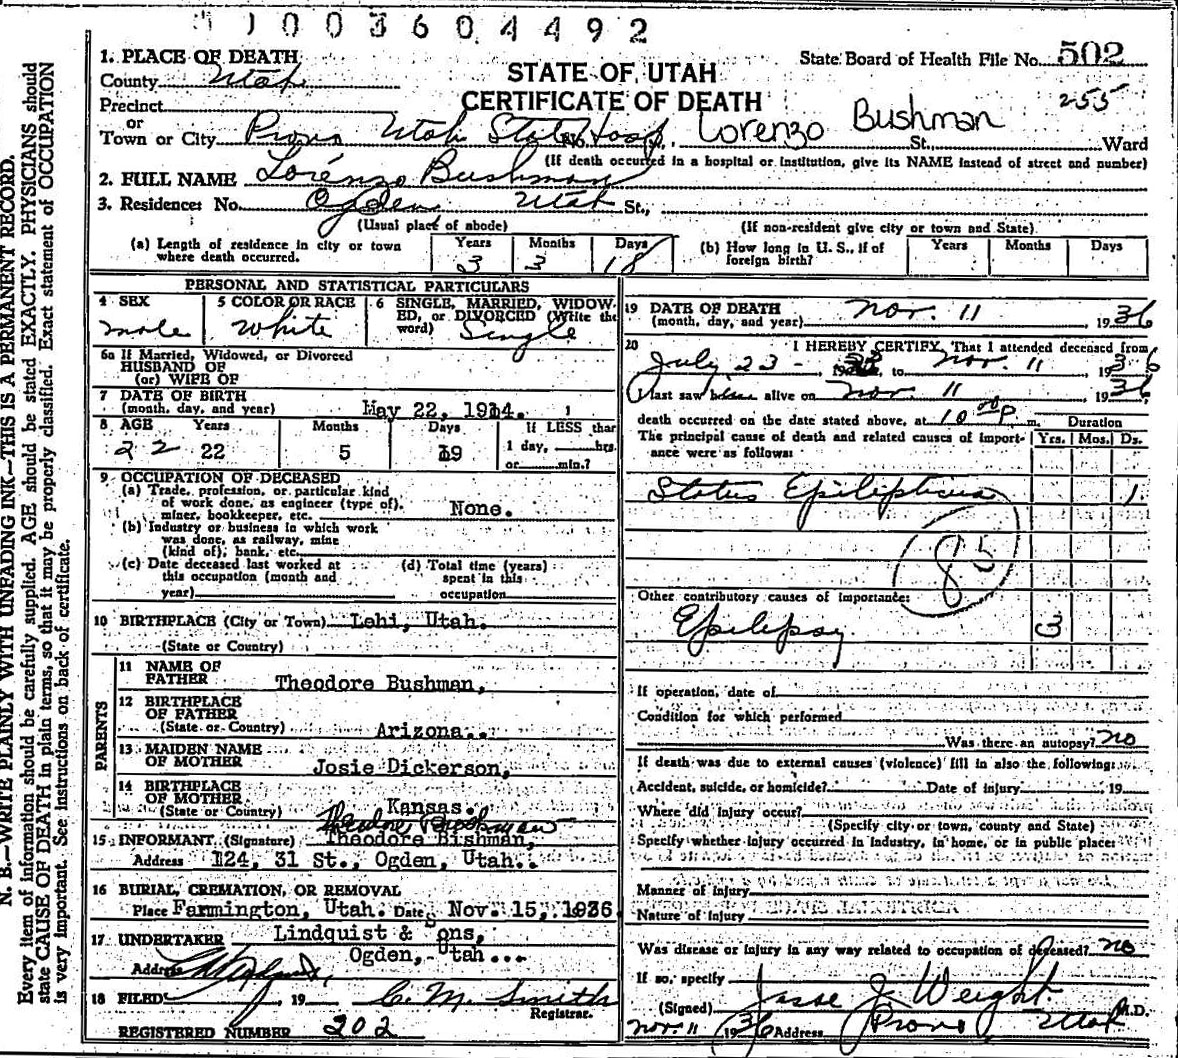 1003604492
1. PLACE OF DEATH
County Utah
State Board of Health File No. 502
STATE OF UTAH
CERTIFICATE OF DEATH
255
Precinct
or
Town or City Provo Utah State Hosp. Lorenzo Bushman St. Ward
(If death occurred in a hospital or institution, give its NAME instead of street and number)
2. FULL NAME Lorenzo Bushman
3. Residence: No. Ogden Utah St.,
(Usual place of abode) (If non-resident give city or town and State)
(a) Length of residence in city or town where death occurred. Years 3 Months 3 Days 18
(b) How long in U. S., if of foreign birth? Years Months Days
PERSONAL AND STATISTICAL PARTICULARS
4 SEX male
5 COLOR OR RACE White
6 SINGLE, MARRIED, WIDOWED, or DIVORCED (Write the word) Single
6a If Married, Widowed, or Divorced
HUSBAND OF
(or) WIFE OF
7 DATE OF BIRTH
(month, day, and year) May 22, 1914.
8 AGE Years Months Days If LESS than
22 22 5 19 1 day, hrs.
or min.?
9 OCCUPATION OF DECEASED
(a) Trade, profession, or particular kind
of work done, as engineer (type of),
miner, bookkeeper, etc. None.
(b) Industry or business in which work
was done, as railway, mine
(kind of), bank, etc.
(c) Date deceased last worked at
this occupation (month and
year)
(d) Total time (years)
spent in this
occupation
10 BIRTHPLACE (City or Town) Lehi, Utah.
(State or Country)
PARENTS
11 NAME OF
FATHER Theodore Bushman,
12 BIRTHPLACE
OF FATHER
(State or Country) Arizona..
13 MAIDEN NAME
OF MOTHER Josie Dickerson,
14 BIRTHPLACE
OF MOTHER
(State or Country) Kansas.
Theodore Bushman
15 INFORMANT, (Signature) Theodore Bishman,
Address 124, 31 St., Ogden, Utah..
16 BURIAL, CREMATION, OR REMOVAL
Place Farmington, Utah. Date Nov. 15, 1936.
17 UNDERTAKER Lindquist & Sons,
Address Ogden, Utah...
18 FILED , 19 C. M. Smith
Registrar.
REGISTERED NUMBER 202
19 DATE OF DEATH
(month, day, and year) Nov. 11, 1936
20 I HEREBY CERTIFY, That I attended deceased from
July 23 - 19 to Nov. 11, 1936
I last saw him alive on Nov. 11, 1936
death occurred on the date stated above, at 10 00 P m.
Duration
The principal cause of death and related causes of importance were as follows: Yrs. Mos. Ds.
Status Epilepticus 1
85
Other contributory causes of importance:
Epilepsy 3
If operation, date of
Condition for which performed
Was there an autopsy? no
If death was due to external causes (violence) fill in also the following:
Accident, suicide, or homicide? Date of injury 19
Where did injury occur?
(Specify city or town, county and State)
Specify whether injury occurred in industry, in home, or in public place:
Manner of injury
Nature of injury
Was disease or injury in any way related to occupation of deceased? no
If so, specify
(Signed) Jasse J Weight M.D.
Nov 11 1936 Address Provo Utah
N. B.—WRITE PLAINLY WITH UNFADING INK—THIS IS A PERMANENT RECORD.
Every item of information should be carefully supplied. AGE should be stated EXACTLY. PHYSICIANS should
state CAUSE OF DEATH in plain terms, so that it may be properly classified. Exact statement of OCCUPATION
is very important. See instructions on back of certificate.